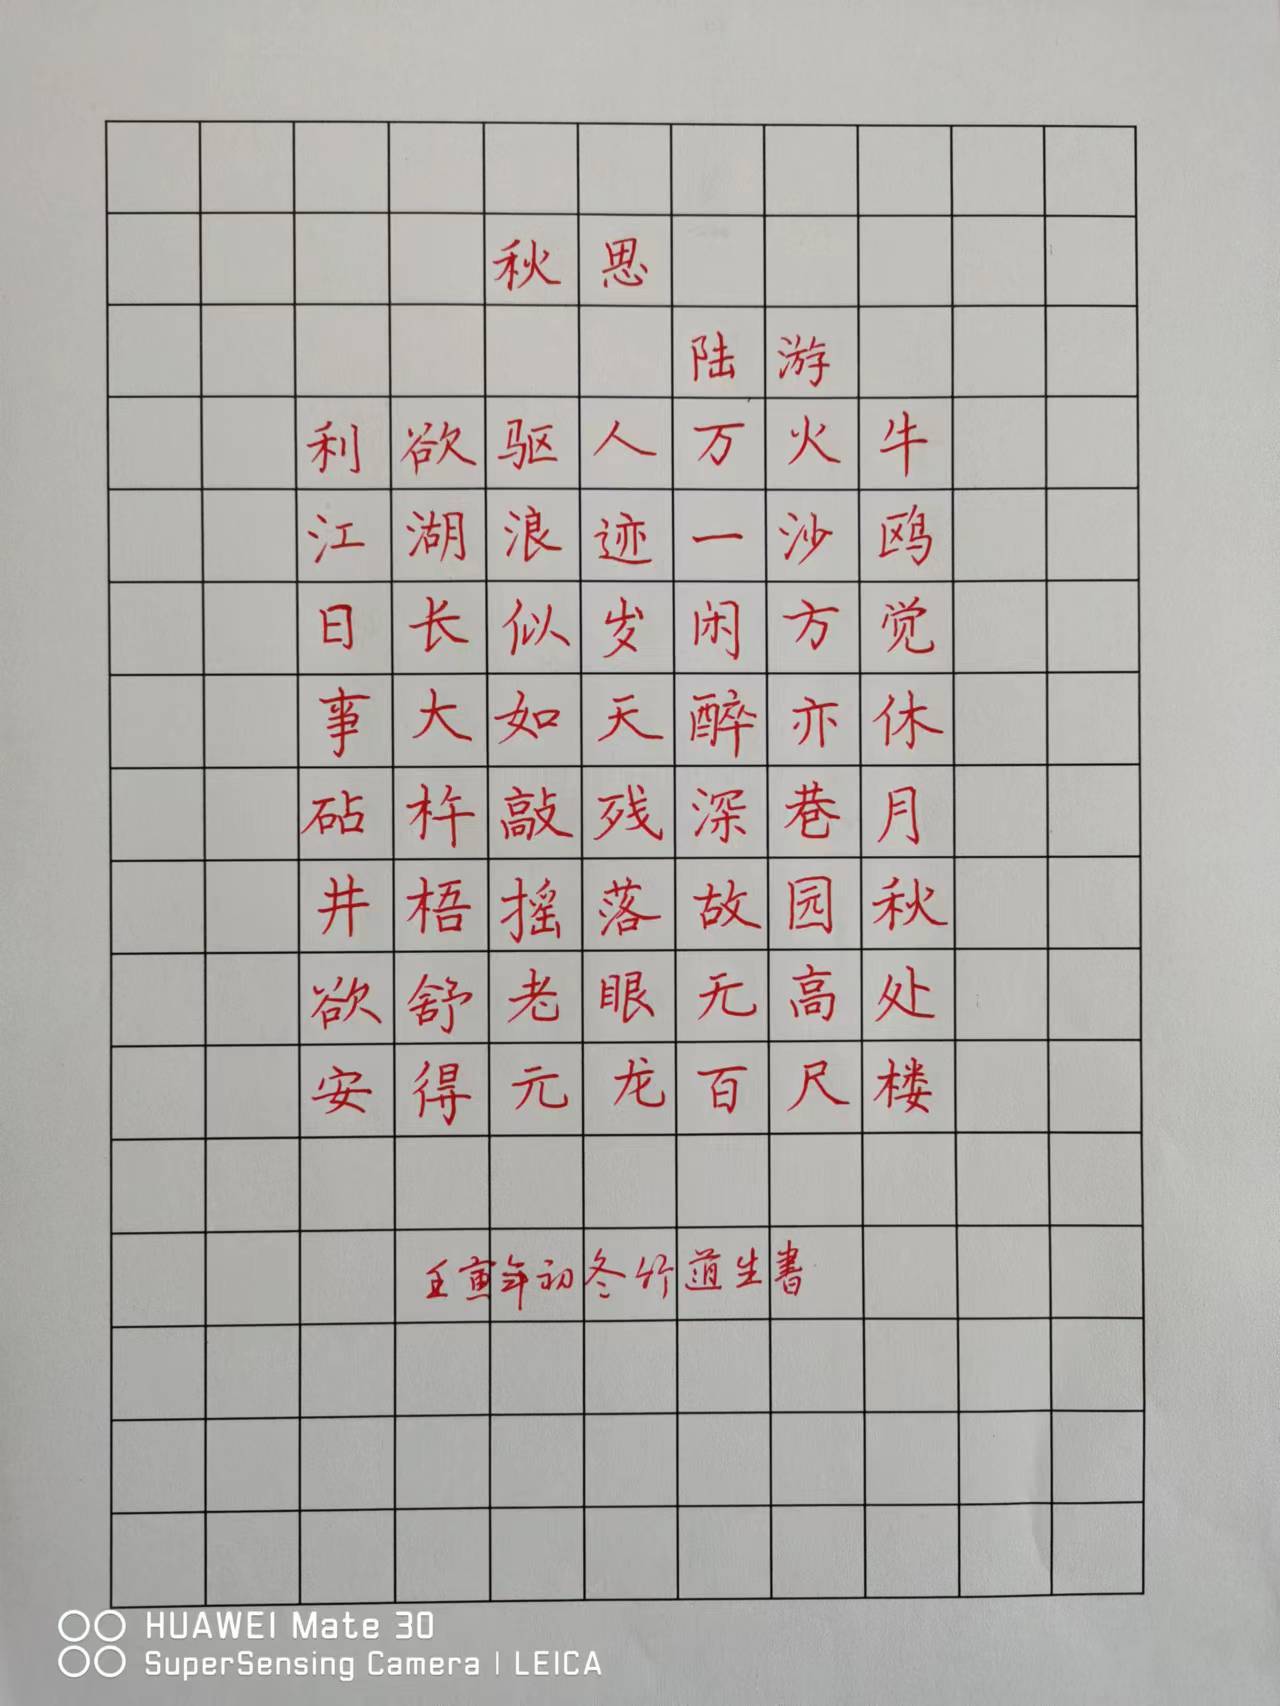 秋思
陆游
利欲驱人万火牛
江湖浪迹一沙鸥
日长似岁闲方觉
事大如天醉亦休
砧杵敲残深巷月
井梧摇落故园秋
欲舒老眼无高处
安得元龙百尺楼
壬寅年初冬竹道生書
HUAWEI Mate 30
SuperSensing Camera | LEICA